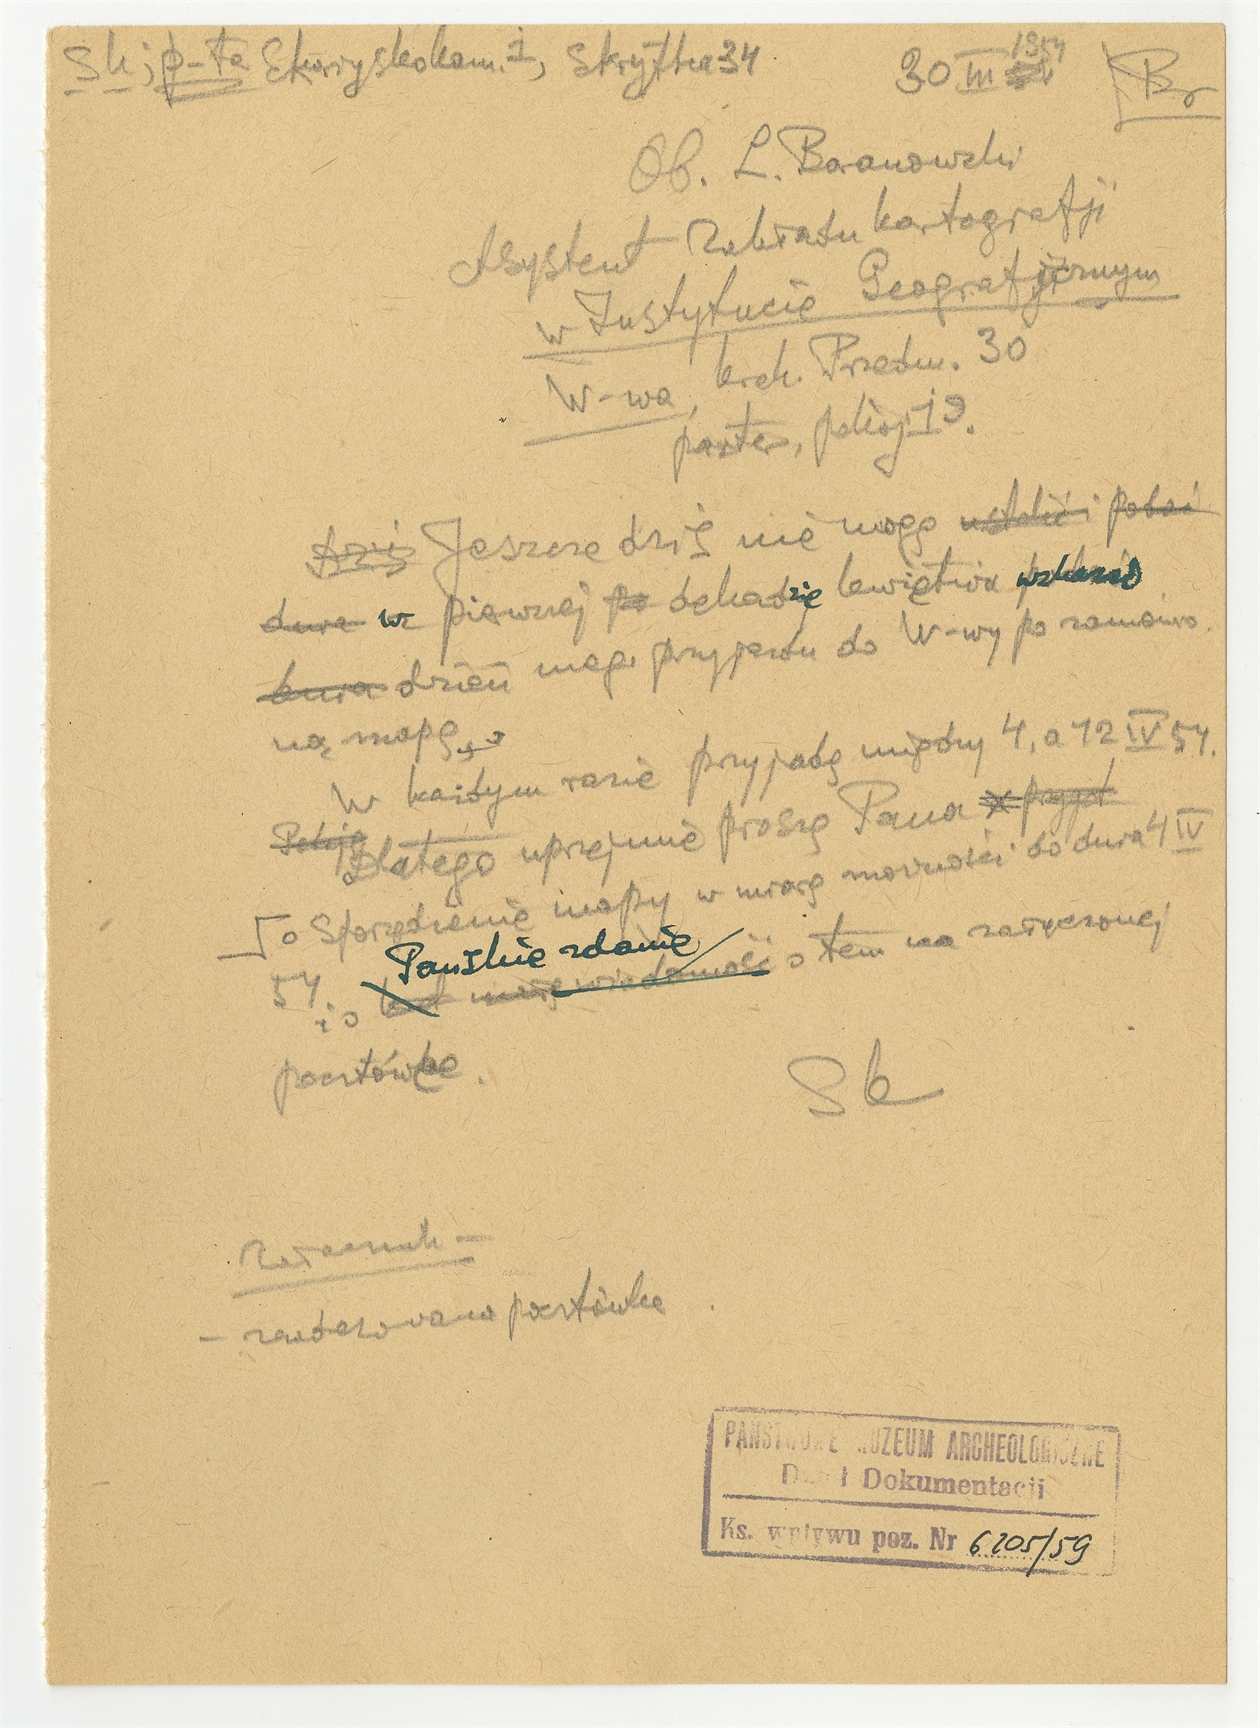 Sk; p-ta Skarżyskokam. 1, Skrytka 34 30 III 1954 Br
Ob. L. Baranowski
Asystent Zakładu kartografji
w Instytucie Geograficznym
W-wa, krak. Przedm. 30
parter, pokój 19.
Dziś Jeszcze dziś nie mogę ustalić i podać
dnia w pierwszej dekadzie kwietnia wskazać
dnia dzień mego przyjazdu do W-wy po zamówio-
ną mapę.
W każdym razie przyjadę między 4, a 12 IV 54.
Dlatego uprzejmie proszę Pana
o sporządzenie mapy w miarę możności do dnia 4 IV
Pańskie zdanie
54. i o wiadomość o tem na załączonej
pocztówce.
Sk
Załącznik –
– zaadresowana pocztówka
PAŃSTWOWE MUZEUM ARCHEOLOGICZNE
Dział Dokumentacji
Ks. wpływu poz. Nr 6205/59